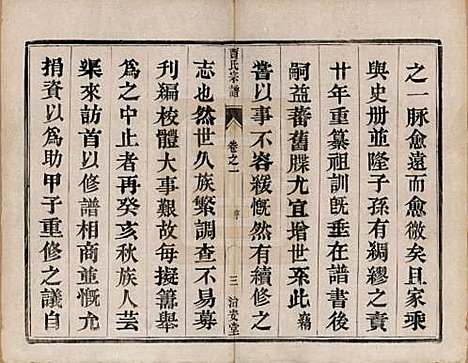 之一脉愈遠而愈微矣且家乘
與史册並隆子孫有綢繆之責
廿年重纂祖訓旣垂在譜書後
嗣益蕃舊牒尤宜增世系此竊
嘗以事不容緩慨然有續修之
賈氏宗譜
卷之一
序
三
治安堂
志也然世久族繁調查不易募
刊編校體大事艱故每擬籌舉
爲之中止者再癸亥秋族人芸
渠來訪首以修譜相商並慨允
捐資以爲助甲子重修之議自